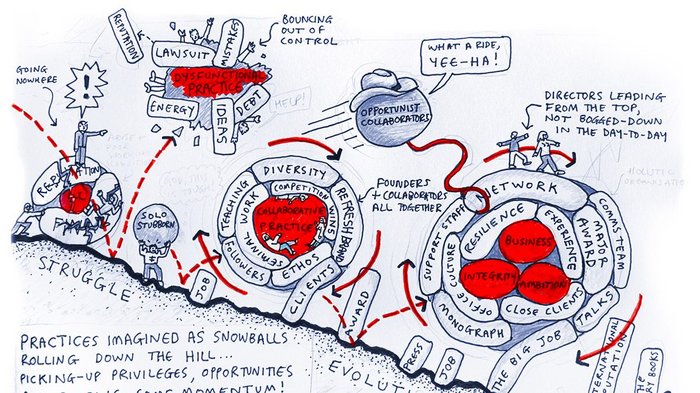 REPUTATION
LAWSUIT
MISTAKES
DYSFUNCTIONAL
PRACTICE
ENERGY
IDEAS
DEBT
HELP!
BOUNCING
OUT OF
CONTROL
GOING
NOWHERE
!
WHAT A RIDE,
YEE-HA!
OPPORTUNIST
COLLABORATORS
DIRECTORS LEADING
FROM THE TOP,
NOT BOGGED-DOWN
IN THE DAY-TO-DAY
SOLO
STUBBORN
DIVERSITY
TEACHING
WORK
COMPETITION
WINS
COLLABORATIVE
PRACTICE
SEMINAR
FOLLOWERS
ETHOS
FOUNDERS
+ COLLABORATORS
ALL TOGETHER
NETWORK
SUPPORT STAFF
RESILIENCE
EXPERIENCE
MAJOR
AWARD
COMMS TEAM
BUSINESS
INTEGRITY
AMBITION
OFFICE CULTURE
CLOSE CLIENTS
MONOGRAPH
TALKS
STRUGGLE
JOB
CLIENTS
AWARD
PRESS
JOB
THE BIG JOB
PRACTICES IMAGINED AS SNOWBALLS
ROLLING DOWN THE HILL...
PICKING-UP PRIVILEGES, OPPORTUNITIES
MOMENTUM!